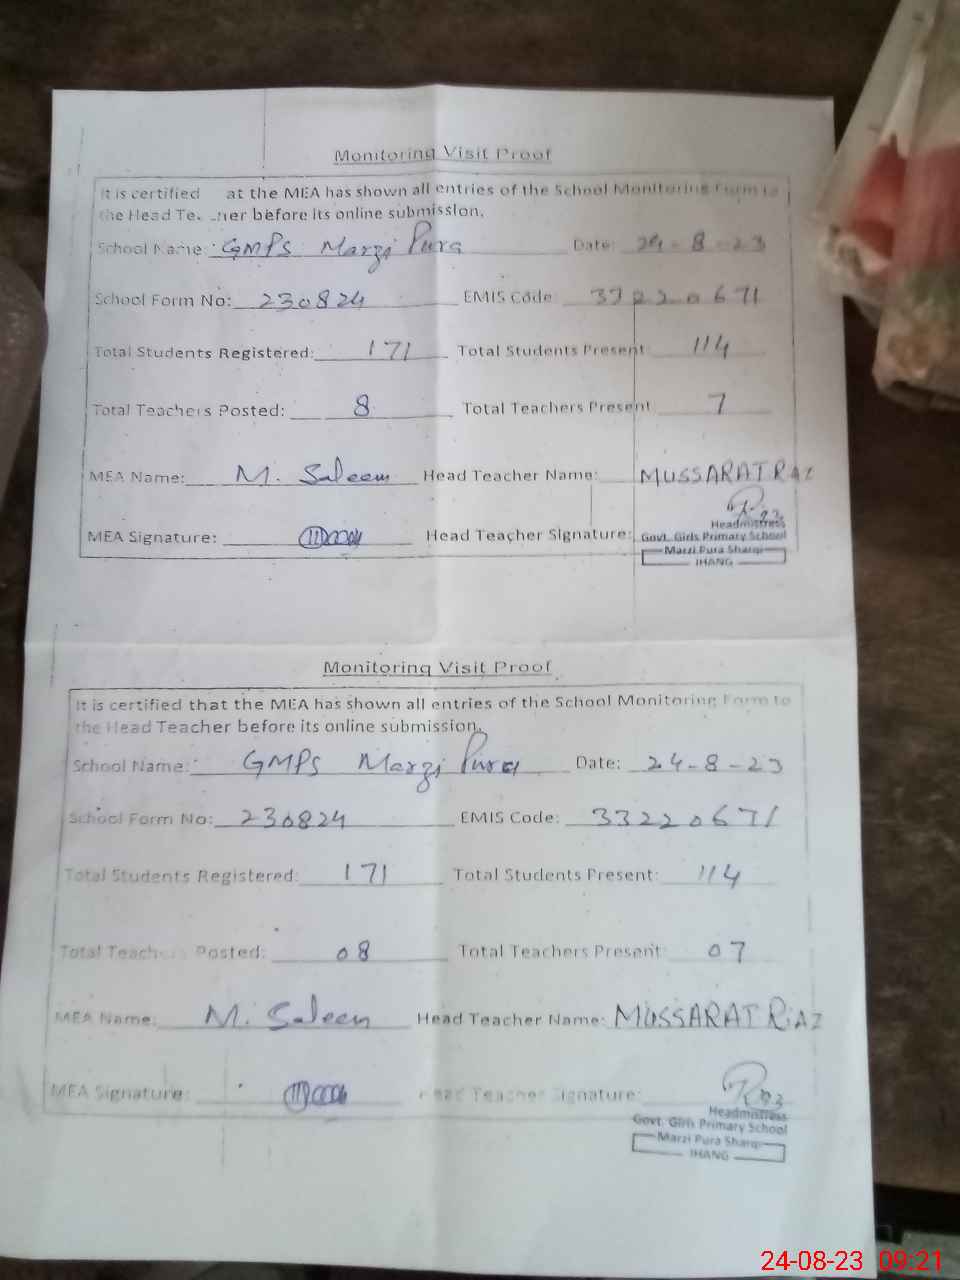 Monitoring Visit Proof
It is certified at the MEA has shown all entries of the School Monitoring Form to
the Head Te. .ner before its online submission.
School Name: GMPS Marzi Pura Date: 24-8-23
School Form No: 230824 EMIS Code: 33220671
Total Students Registered: 171 Total Students Present 114
Total Teachers Posted: 8 Total Teachers Present 7
MEA Name: M. Saleem Head Teacher Name: MUSSARAT RIAZ
MEA Signature: Head Teacher Signature:
Headmistress
Govt. Girls Primary School
Marzi Pura Sharqi
JHANG
Monitoring Visit Proof
It is certified that the MEA has shown all entries of the School Monitoring Form to
the Head Teacher before its online submission.
School Name: GMPS Marzi Pura Date: 24-8-23
School Form No: 230824 EMIS Code: 33220671
Total Students Registered: 171 Total Students Present: 114
Total Teachers Posted: 08 Total Teachers Present 07
MEA Name: M. Saleem Head Teacher Name: MUSSARAT RIAZ
MEA Signature: Head Teacher Signature:
Headmistress
Govt. Girls Primary School
Marzi Pura Sharqi
JHANG
24-08-23 09:21